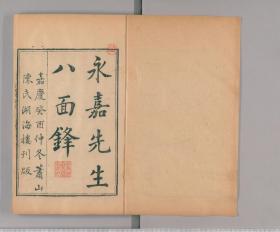 永嘉先生
八面鋒
嘉慶癸酉仲冬蕭山
陳氏湖海樓刊版